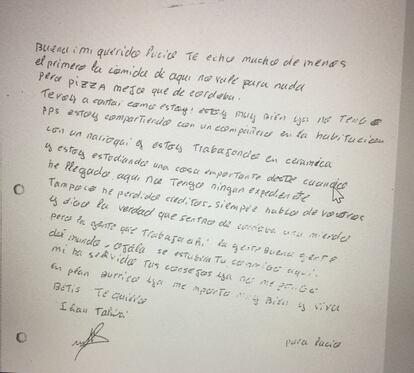 Buena i mi querido Lucio Te echo mucho de menos
el primero la comida de aqui no vale para nada
pero pizza mejo que de cordoba.
Te voy a contar como estoy: estoy muy Bien ya no TENGO
PPS estoy compartiendo con un compañero en la habitacion
con un narioqui y estoy Trabajondo en ceramica
y estoy estudiando una cosa importante desde cuando
he llegado. aqui no Tengo ningun expediente
Tampoco he perdido creditos. siempre hablo de vosotros
y dico la verdad que sentro de cordoba una mierda
pero la gente que Trabaja ahi la gente Buena gente
del mundo. ojala se estubira Tu conmigo aqui.
mi ha servido Tus consejos ya no me pongo
en plan Burrico ya me mporto muy Bien y viva
Betis Te quiero
Ihau
para Lucio